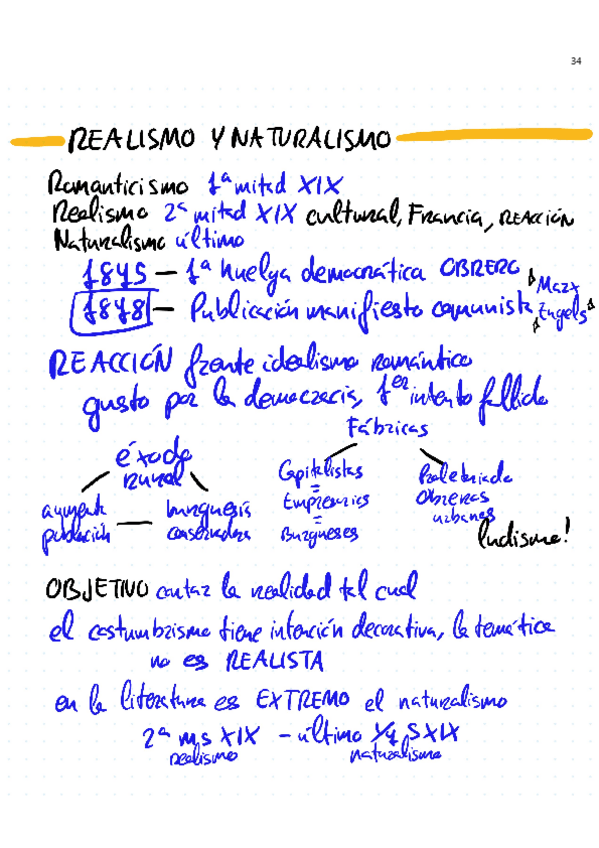 34
REALISMO Y NATURALISMO
Romanticismo 1ª mitad XIX
Realismo 2ª mitad XIX cultural, Francia, REACCIÓN
Naturalismo último
1845 — 1ª huelga democrática OBRERO
Marx
1848 — Publicación manifiesto comunista
Engels
REACCIÓN frente idealismo romántico
gusto por la democracia, 1er intento fallido
Fábricas
éxodo
rural
aumenta
población
burguesía
conservadora
Capitalistas
=
Empresarios
=
Burgueses
Proletariado
Obreros
urbanos
ludismo!
OBJETIVO contar la realidad tal cual
el costumbrismo tiene intención decorativa, la temática
no es REALISTA
en la literatura es EXTREMO el naturalismo
2ª ms XIX – último 1/4 S XIX
realismo naturalismo